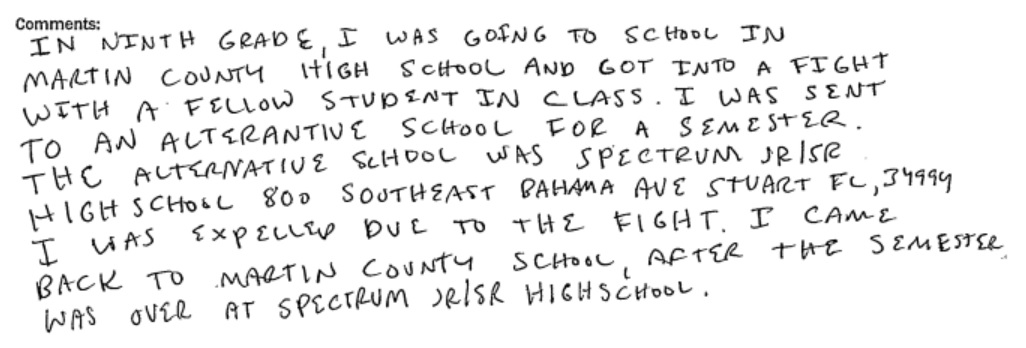 Comments:
IN NINTH GRADE, I WAS GOING TO SCHOOL IN
MARTIN COUNTY HIGH SCHOOL AND GOT INTO A FIGHT
WITH A FELLOW STUDENT IN CLASS. I WAS SENT
TO AN ALTERANTIVE SCHOOL FOR A SEMESTER.
THE ALTERNATIVE SCHOOL WAS SPECTRUM JR/SR
HIGH SCHOOL 800 SOUTHEAST BAHAMA AVE STUART FL, 34994
I WAS EXPELLED DUE TO THE FIGHT. I CAME
BACK TO MARTIN COUNTY SCHOOL, AFTER THE SEMESTER
WAS OVER AT SPECTRUM JR/SR HIGHSCHOOL.